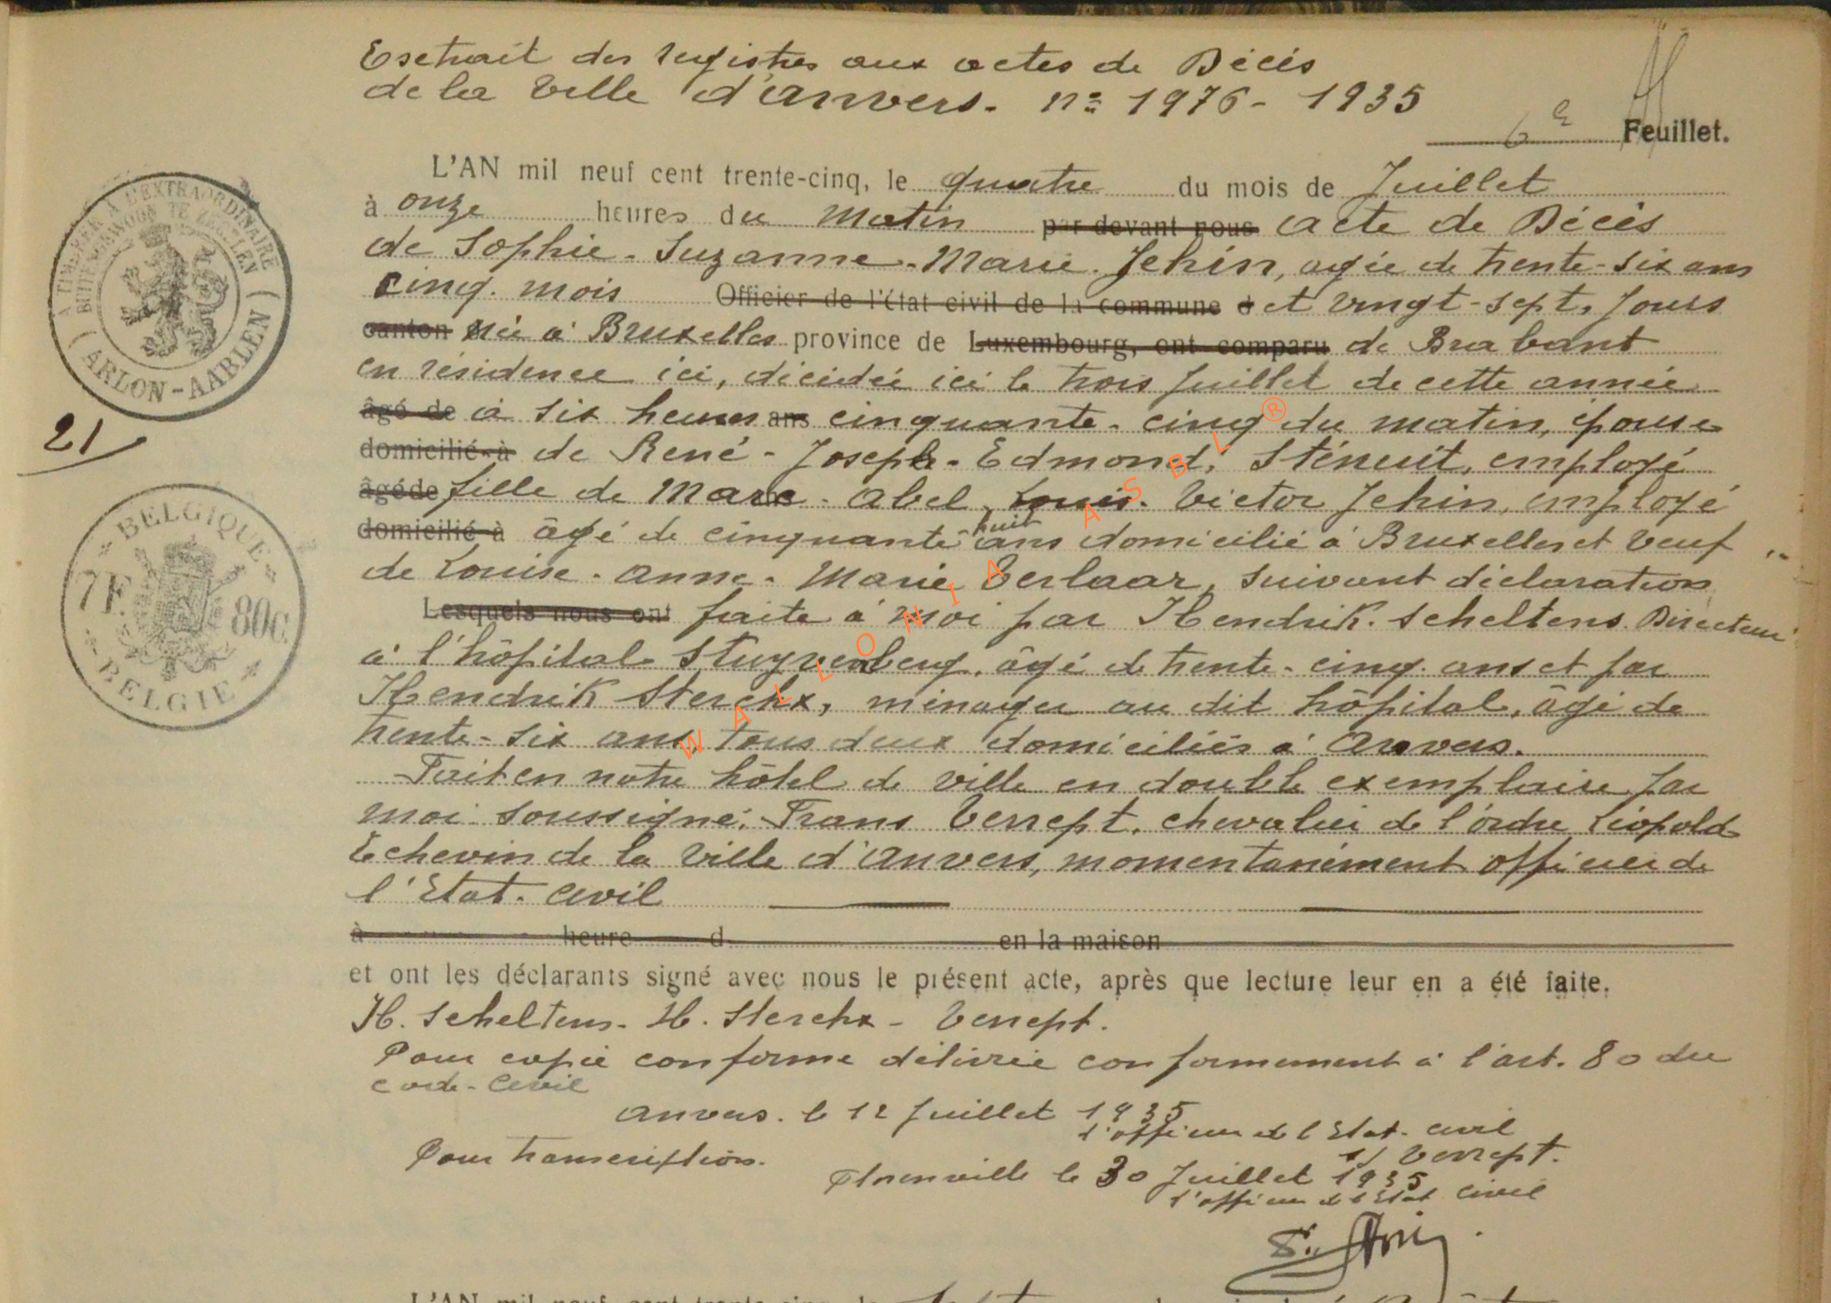 Extrait des registres aux actes de Décès
de la Ville d'Anvers. nº 1976 - 1935
6e Feuillet.
L'AN mil neuf cent trente-cinq, le quatre du mois de Juillet
à onze heures du matin par devant nous acte de Décès
de Sophie - Suzanne - Marie - Jehin, agée de trente-six ans
cinq mois Officier de l'État civil de la commune d et vingt-sept, jours
canton née à Bruxelles province de Luxembourg, ont comparu de Brabant
en résidence ici, décédée ici le trois Juillet de cette année
âgé de à six heures ans cinquante-cinq du matin, épouse
domicilié à de René - Joseph - Edmond, Sténuit, employé
âgé de fille de Marc - Abel, Louis - Victor Jehin, employé
domicilié à âgé de cinquante huit ans domicilié à Bruxelles et veuf
de Louise - Anne - Marie Verlaar, suivant déclaration
Lesquels nous ont faite à moi par Hendrik Scheltens Directeur
à l'hôpital Stuyvenberg, âgé de trente-cinq ans et par
Hendrik Sterckx, ménager au dit hôpital, âgé de
trente-six ans, tous deux domiciliés à Anvers.
Fait en notre hôtel de ville en double exemplaire par
moi soussigné, Frans Verrept, chevalier de l'ordre Léopold
Echevin de la Ville d'Anvers, momentanément officier de
l'Etat-civil
à heure d en la maison
et ont les déclarants signé avec nous le présent acte, après que lecture leur en a été faite.
H. Scheltens - H. Sterckx - Verrept.
Pour copie conforme délivrée conformément à l'art. 80 du
code-civil
Anvers. le 12 Juillet 1935
l'officier de l'Etat-civil
s/ Verrept.
Pour transcription.
Florenville le 30 Juillet 1935
l'officier de l'Etat civil
A TIMBRER A L'EXTRAORDINAIRE
BUITENGEWOON TE ZEGELEN
(ARLON-AARLEN)
21
BELGIQUE
7F. 80c.
BELGIE
WALLONIA ASBL ®
L'AN mil neuf cent trente-cinq, le